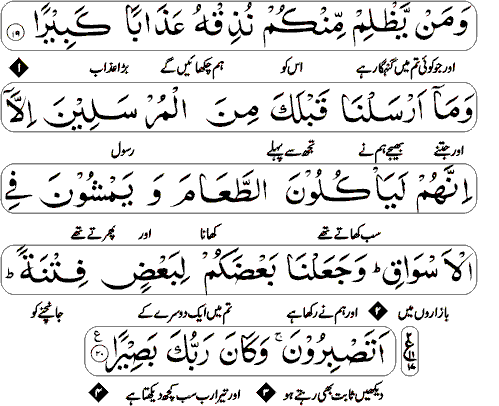 وَمَنْ يَّظْلِمْ مِّنْكُمْ نُذِقْهُ عَذَابًا كَبِيْرًا ﴿۱۹﴾
اور جو کوئی تم میں گنہگار ہے اس کو ہم چکھائیں گے بڑا عذاب ۱
وَمَآ اَرْسَلْنَا قَبْلَكَ مِنَ الْمُرْسَلِيْنَ اِلَّآ
اور جتنے بھیجے ہم نے تجھ سے پہلے رسول
اِنَّهُمْ لَيَاْكُلُوْنَ الطَّعَامَ وَ يَمْشُوْنَ فِي
سب کھاتے تھے کھانا اور پھرتے تھے
الْاَسْوَاقِ ؕ وَجَعَلْنَا بَعْضَكُمْ لِبَعْضٍ فِتْنَةً ؕ
بازاروں میں ۲ اور ہم نے رکھا ہے تم میں ایک دوسرے کے جانچنے کو
اَتَصْبِرُوْنَ ۚ وَكَانَ رَبُّكَ بَصِيْرًا ﴿۲۰﴾ ع
دیکھیں ثابت بھی رہتے ہو ۳ اور تیرا رب سب کچھ دیکھتا ہے ۴